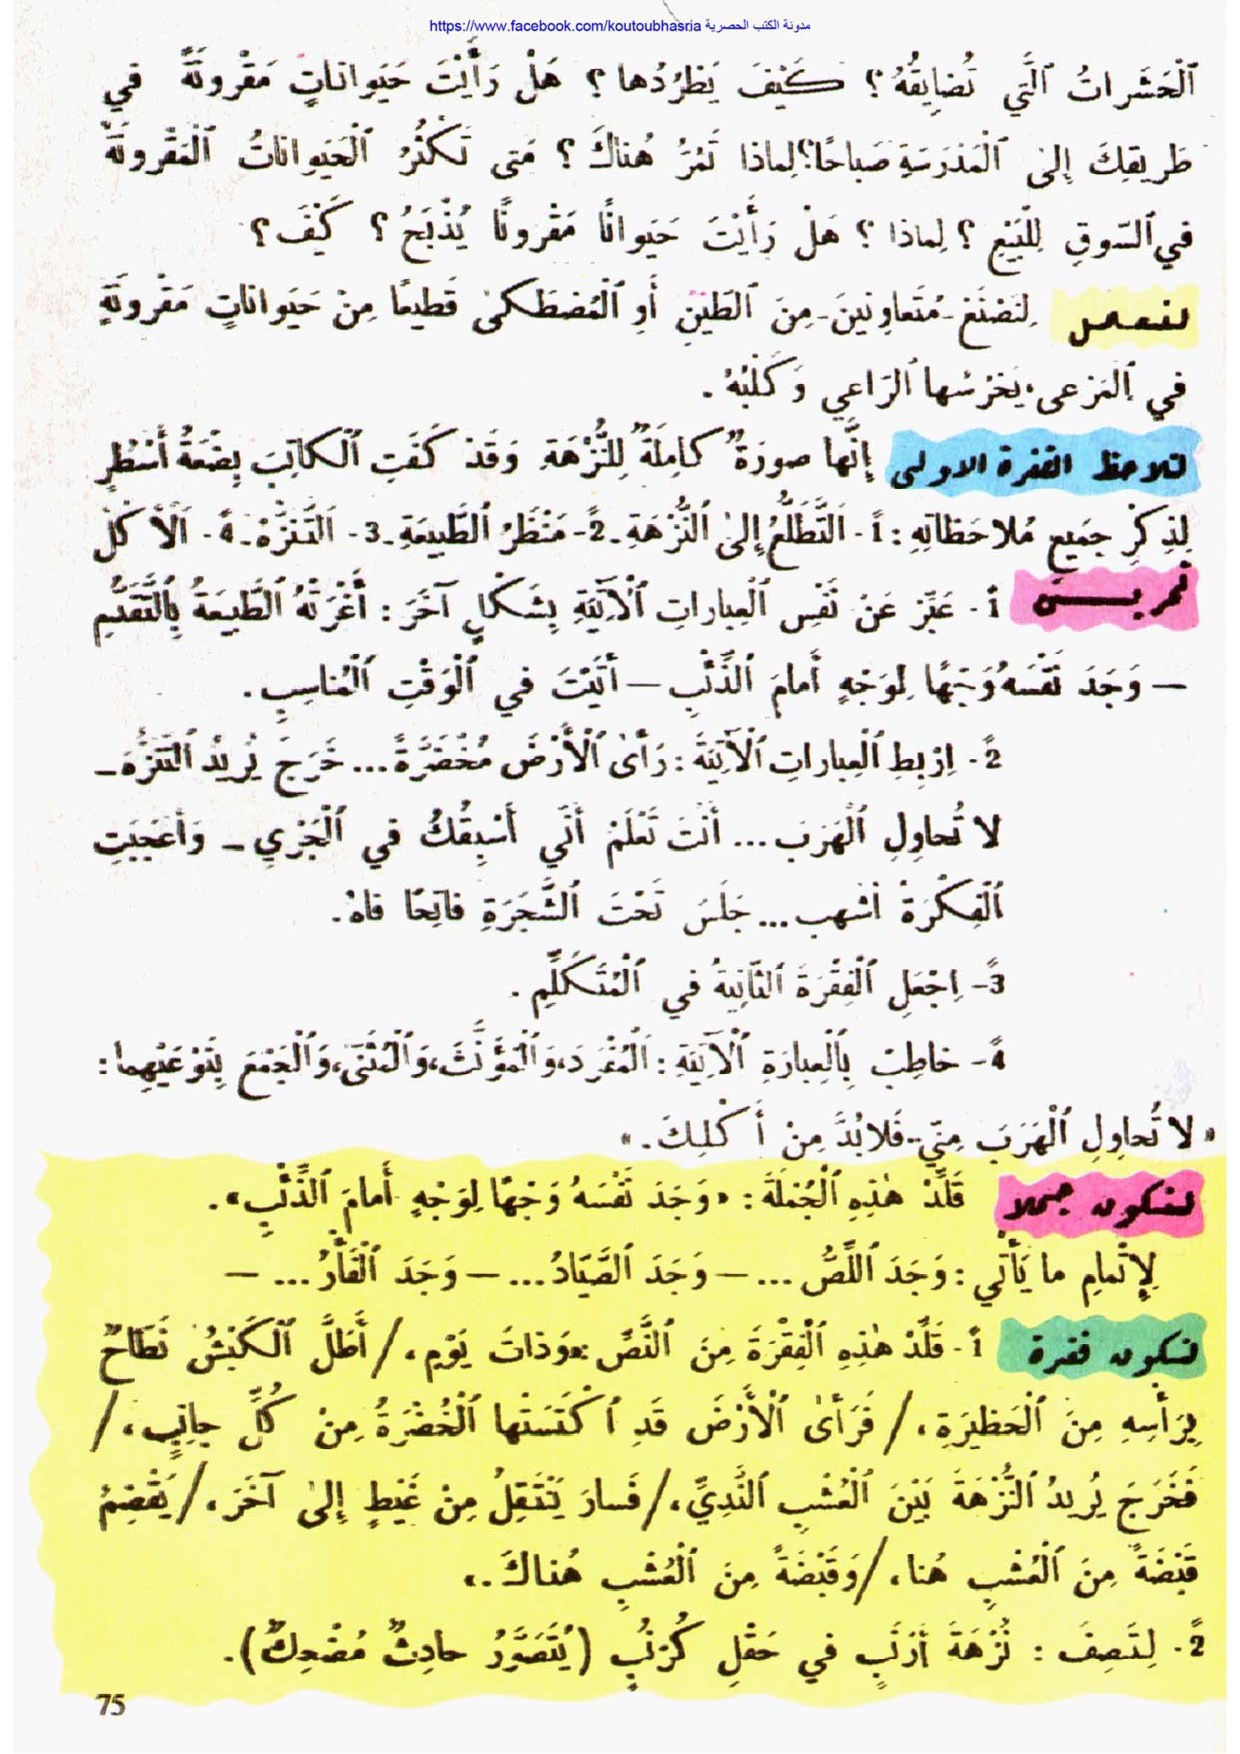 مدونة الكتب الحصرية https://www.facebook.com/koutoubhasria
اَلْحَشَراتُ ٱلَّتي تُضايِقُهُ؟ كَيْفَ يَطْرُدُها؟ هَلْ رَأَيْتَ حَيَواناتٍ مَقْرونَةً في
طَريقِكَ إِلىٰ ٱلْمَدْرَسَةِ صَباحًا؟ لِماذا تَمُرُّ هُناكَ؟ مَتى تَكْثُرُ ٱلْحَيَواناتُ ٱلْمَقْرونَةُ
في ٱلسّوقِ لِلْبَيْعِ؟ لِماذا؟ هَلْ رَأَيْتَ حَيَوانًا مَقْرونًا يُذْبَحُ؟ كَيْفَ؟
لنعمل لِنَصْنَعْ - مُتَعاوِنينَ - مِنَ ٱلطّينِ أَوِ ٱلْمُصْطَكى قَطيعًا مِنْ حَيَواناتٍ مَقْرونَةٍ
في ٱلْمَرْعى، يَحْرُسُها ٱلرّاعي وَكَلْبُهُ.
لنلاحظ الفقرة الاولى إِنَّها صورَةٌ كامِلَةٌ لِلنُّزْهَةِ وَقَدْ كَفَتِ ٱلْكاتِبَ بِضْعَةُ أَسْطُرٍ
لِذِكْرِ جَميعِ مُلاحَظاتِهِ: 1- اَلتَّطَلُّعُ إِلىٰ ٱلنُّزْهَةِ - 2- مَنْظَرُ ٱلطَّبيعَةِ - 3- اَلتَّنَزُّهُ - 4- اَلْأَكْلُ
تمريــن 1- عَبِّرْ عَنْ نَفْسِ ٱلْعِباراتِ ٱلْآتِيَةِ بِشَكْلٍ آخَرَ: أَغْرَتْهُ ٱلطَّبيعَةُ بِٱلتَّقَدُّمِ
— وَجَدَ نَفْسَهُ وَجْهًا لِوَجْهٍ أَمامَ ٱلذِّئْبِ — أَتَيْتَ في ٱلْوَقْتِ ٱلْمُناسِبِ.
2- اِرْبِطِ ٱلْعِباراتِ ٱلْآتِيَةَ: رَأىٰ ٱلْأَرْضَ مُخْضَرَّةً... خَرَجَ يُريدُ ٱلتَّنَزُّهَ -
لا تُحاوِلِ ٱلْهَرَبَ... أَنْتَ تَعْلَمُ أَنّي أَسْبِقُكُ في ٱلْجَرْيِ - وَأَعْجَبَتِ
ٱلْفِكْرَةُ أشهب... جَلَسَ تَحْتَ ٱلشَّجَرَةِ فاتِحًا فاهُ.
3- اِجْعَلِ ٱلْفِقْرَةَ ٱلثّانِيَةُ في ٱلْمُتَكَلِّمِ.
4- خاطِبْ بِٱلْعِبارَةِ ٱلْآتِيَةِ: ٱلْمُفْرَدَ، وَٱلْمُؤَنَّثَ، وَٱلْمُثَنّى، وَٱلْجَمْعَ بِنَوْعَيْهِما:
« لا تُحاوِلِ ٱلْهَرَبَ مِنّي.. فَلابُدَّ مِنْ أَكْلِكَ. »
لنكون جملا قَلِّدْ هٰذِهِ ٱلْجُمْلَةَ: «وَجَدَ نَفْسَهُ وَجْهًا لِوَجْهٍ أَمامَ ٱلذِّئْبِ».
لِإِتْمامِ ما يَأْتي: وَجَدَ ٱللِّصُّ ... — وَجَدَ ٱلصَّيّادُ ... — وَجَدَ ٱلْفَأْرُ ... —
لنكون فقرة 1- قَلِّدْ هٰذِهِ ٱلْفِقْرَةَ مِنَ ٱلنَّصِّ: «وَذاتَ يَوْمٍ، / أَطَلَّ ٱلْكَبْشُ نَطّاحٌ
بِرَأْسِهِ مِنَ ٱلْحَظيرَةِ، / فَرَأىٰ ٱلْأَرْضَ قَدِ ٱكْتَسَتْها ٱلْخُضْرَةُ مِنْ كُلِّ جانِبٍ، /
فَخَرَجَ يُريدُ ٱلنُّزْهَةَ بَيْنَ ٱلْعُشْبِ ٱلنَّدِيِّ، / فَسارَ يَنْتَقِلُ مِنْ غَيْطٍ إِلىٰ آخَرَ، / يَقْضِمُ
قَبْضَةً مِنَ ٱلْعُشْبِ هُنا، / وَقَبْضَةً مِنَ ٱلْعُشْبِ هُناكَ.»
2- لِنَصِفَ: نُزْهَةَ أَرْنَبٍ في حَقْلِ كُرُنْبٍ (يُتَصَوَّرُ حادِثٌ مُضْحِكٌ).
75